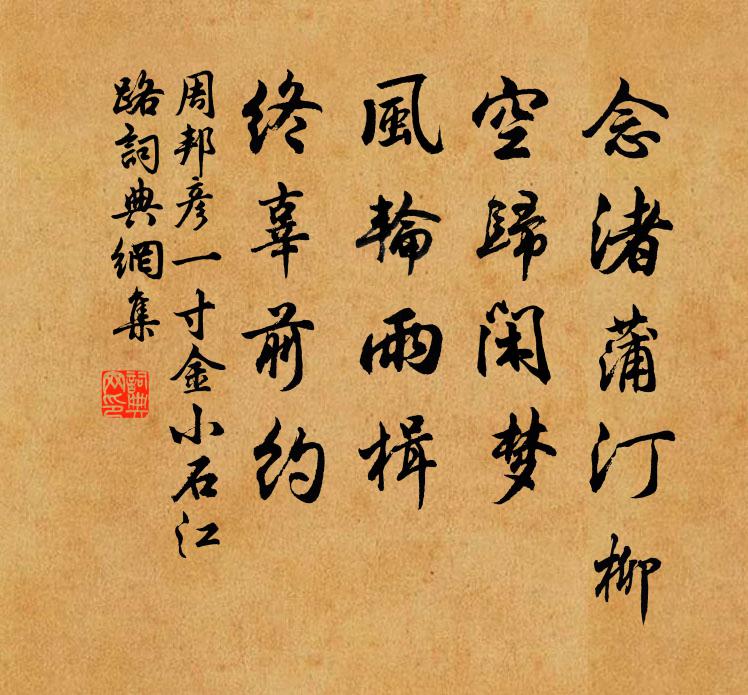 念渚蒲汀柳
空歸闲梦
風輪雨楫
終辜前約
周邦彦一寸金小石江
路詞典網集
詞典
网印